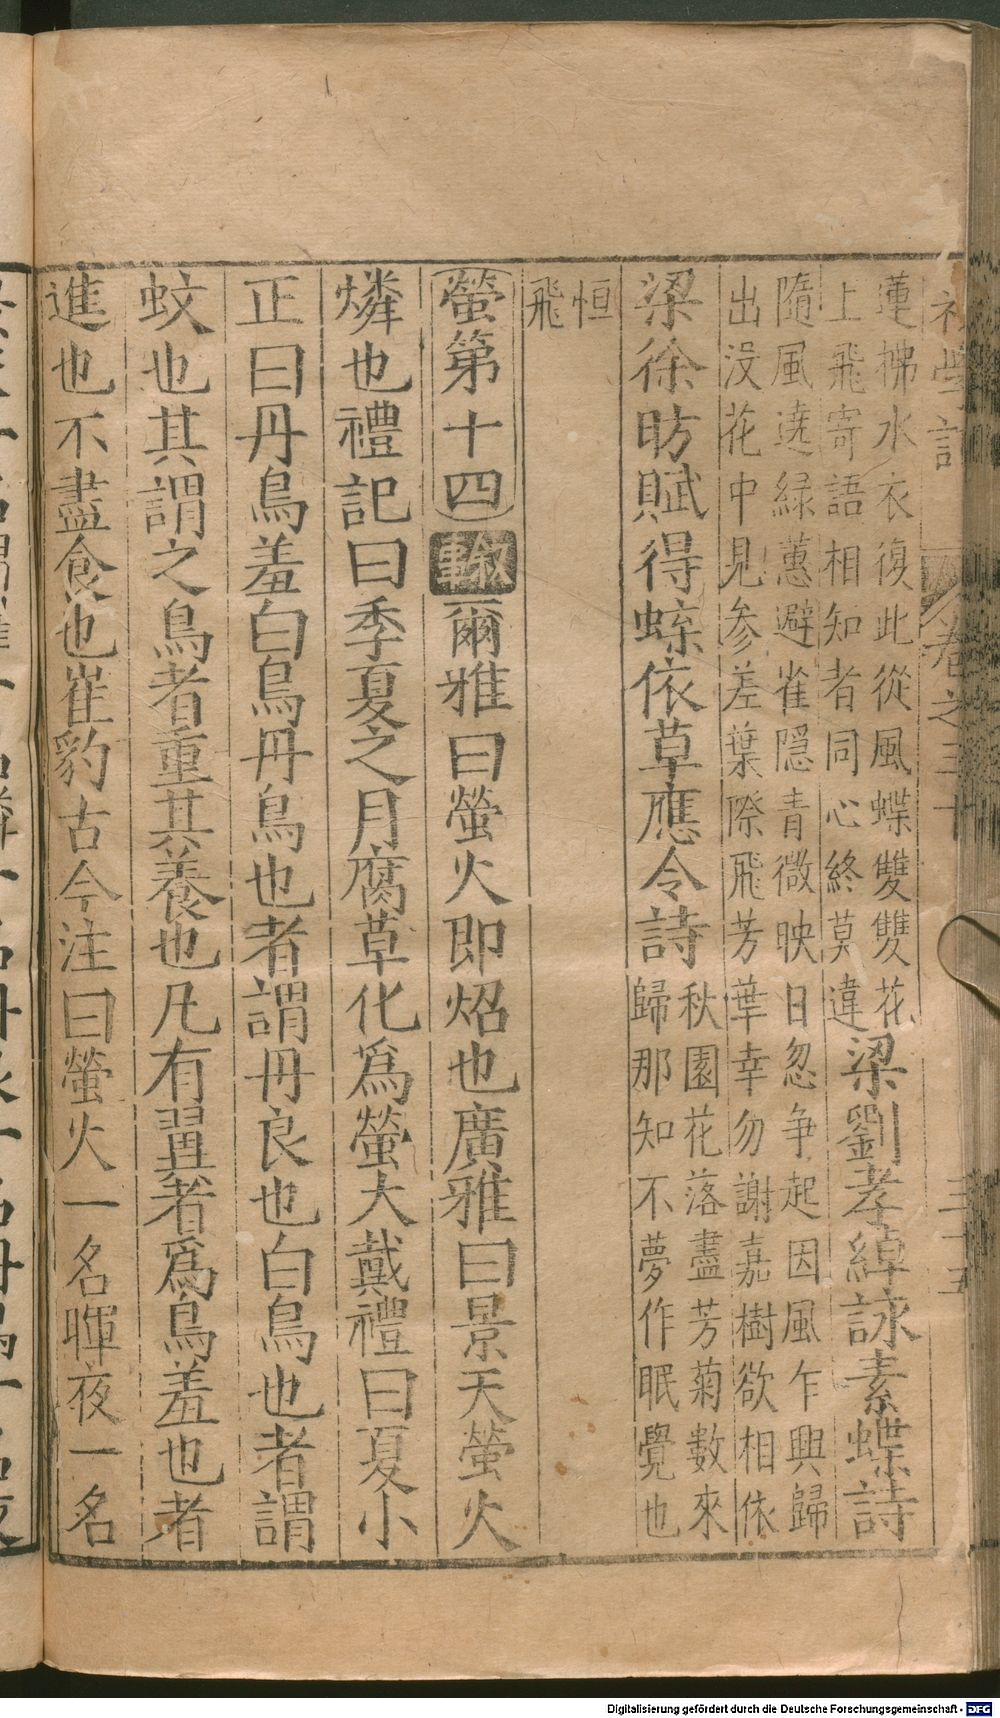 初學記 卷之三十 三十五
蓮拂水衣復此從風蝶雙雙花
上飛寄語相知者同心終莫違
梁劉孝綽詠素蝶詩
隨風遶緑蕙避雀隱青微映日忽争起因風乍興歸
出没花中見參差葉際飛芳華幸勿謝嘉樹欲相依
梁徐昉賦得蝶依草應令詩
秋園花落盡芳菊數來
歸那知不夢作眠覺也
恒
飛
螢第十四 敘事 爾雅曰螢火即炤也廣雅曰景天螢火
燐也禮記曰季夏之月腐草化爲螢大戴禮曰夏小
正曰丹鳥羞白鳥丹鳥也者謂丹良也白鳥也者謂
蚊也其謂之鳥者重其養也凡有翼者爲鳥羞也者
進也不盡食也崔豹古今注曰螢火一名暉夜一名
Digitalisierung gefördert durch die Deutsche Forschungsgemeinschaft - DFG